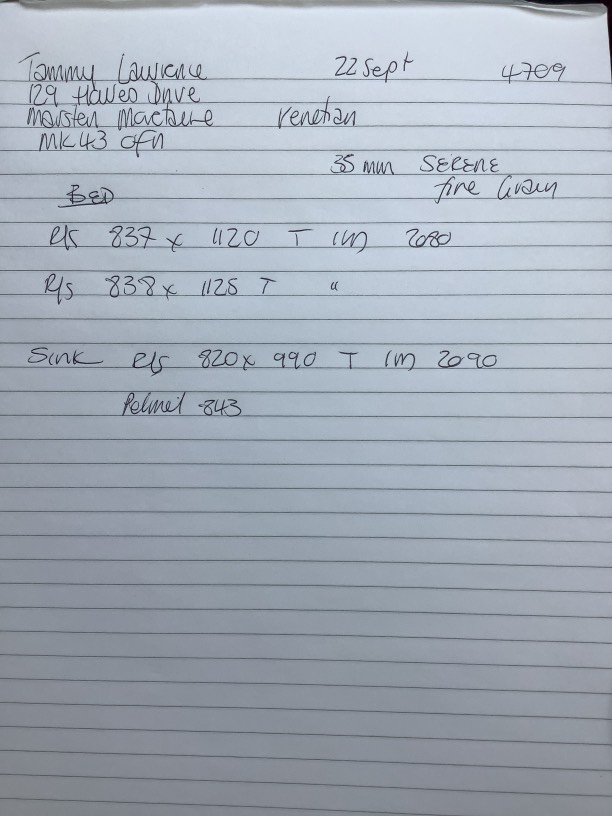 Tammy Lawrence 22 Sept 4709
129 Hawes Drive
Marsten Moretaine Venetian
MK43 0FN
35 mm SERENE
fine Grain
BED
R/S 837 x 1120 T IM 2080
R/S 838 x 1125 T "
Sink R/S 820 x 990 T IM 2090
Pelmet 843